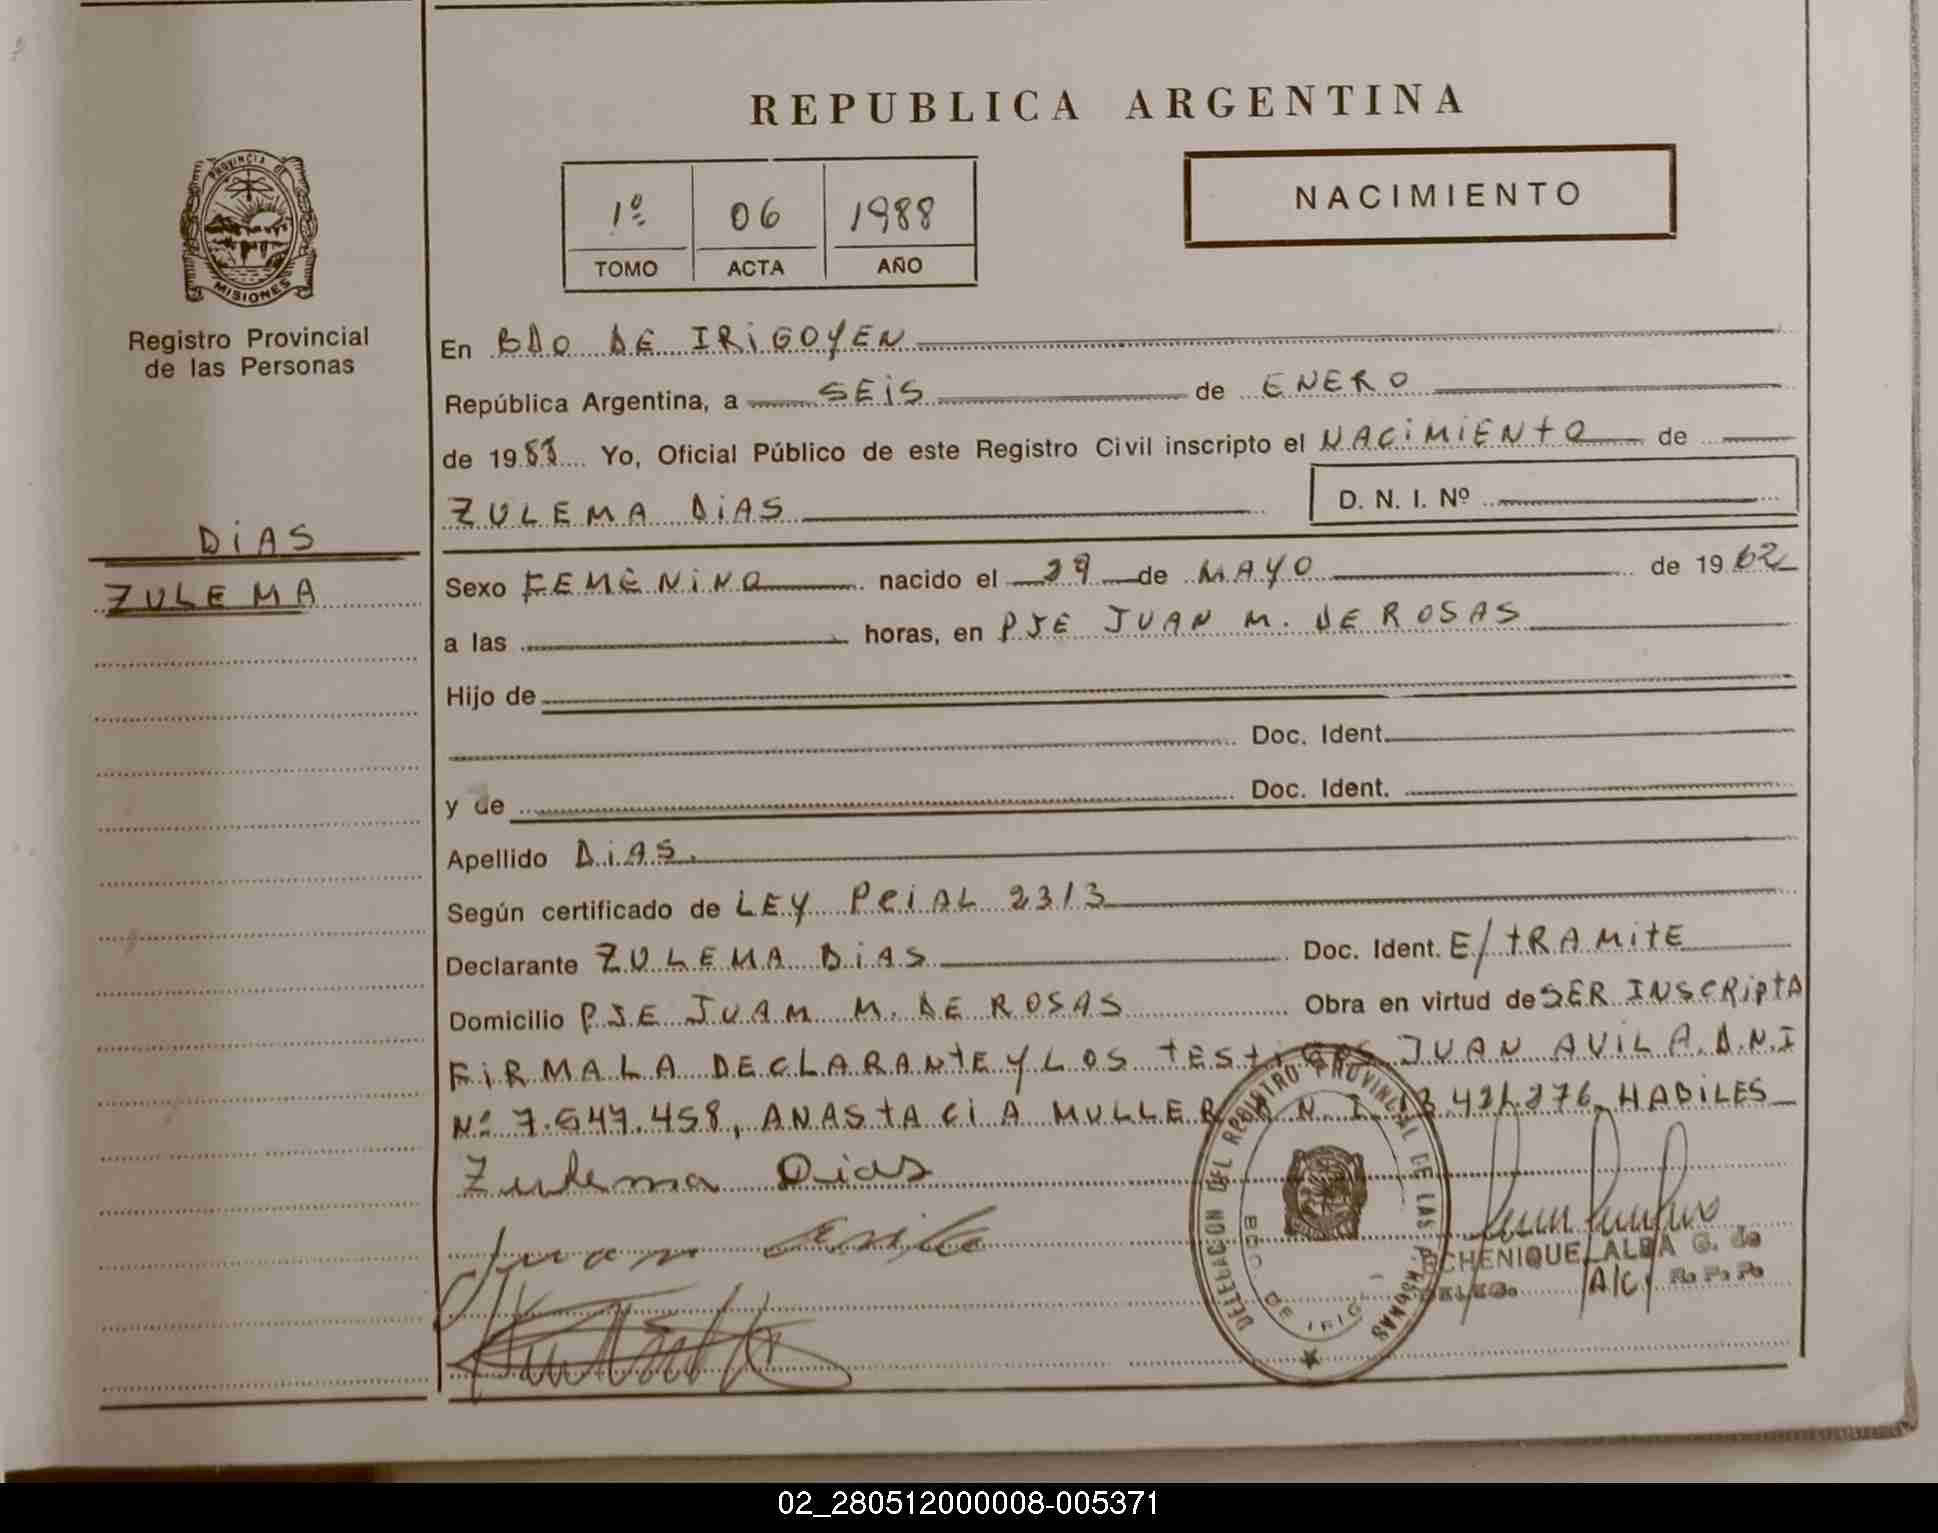 REPUBLICA ARGENTINA
PROVINCIA DE
MISIONES
Registro Provincial
de las Personas
1º 06 1988
TOMO ACTA AÑO
NACIMIENTO
En BDO DE IRIGOYEN
República Argentina, a SEIS de ENERO
de 1988 Yo, Oficial Público de este Registro Civil inscripto el NACIMIENTO de
ZULEMA DIAS D. N. I. Nº
DIAS
ZULEMA
Sexo FEMENINO nacido el 29 de MAYO de 1962
a las horas, en PJE JUAN M. DE ROSAS
Hijo de
Doc. Ident.
y de Doc. Ident.
Apellido DIAS.
Según certificado de LEY PCIAL 2313
Declarante ZULEMA DIAS Doc. Ident. E/TRAMITE
Domicilio PJE JUAM M. DE ROSAS Obra en virtud de SER INSCRIPTA
FIRMA LA DECLARANTE Y LOS TESTIGOS JUAN AVILA. D.N.I
Nº 7.647.458, ANASTACIA MULLER D.N.I. 13.421.276, HABILES
Zulema Dias
Juan Avila
DELEGACION DEL REGISTRO PROVINCIAL DE LAS PERSONAS
BDO DE IRIG
CHENIQUE, ALBA G. de
A/C. R. P. P.
02_280512000008-005371